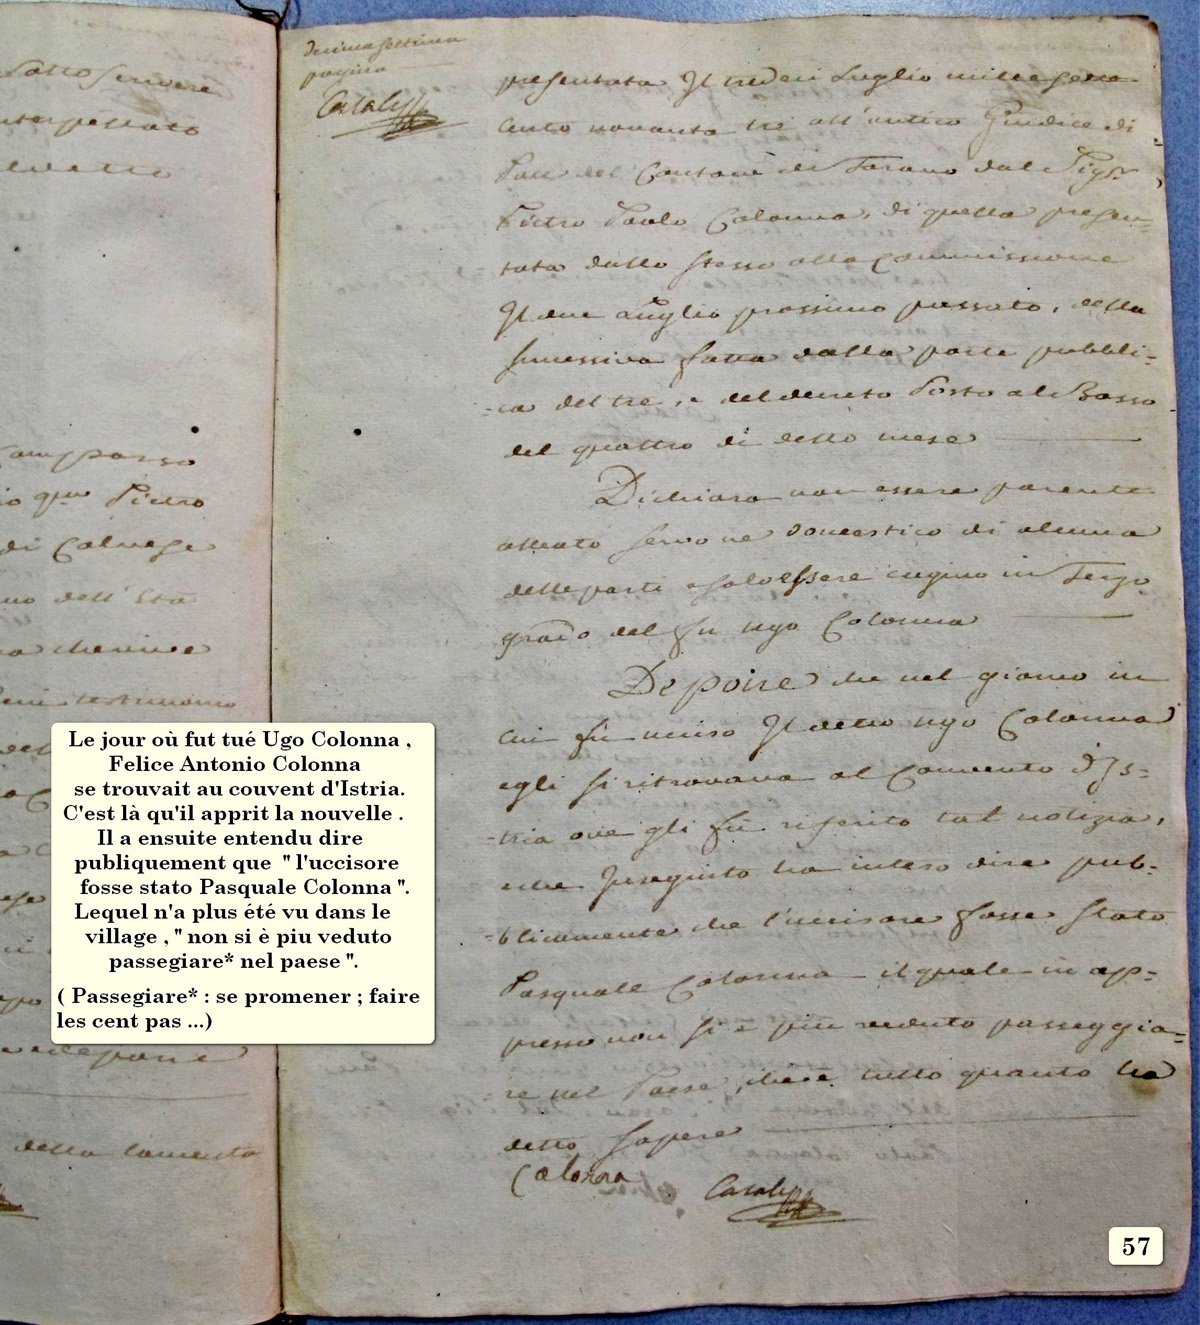 Sotto scrivere
interpellato
Camposso
io qm Pietro
di Calvese
no dell' Età
testimonio
depone
della lamenta
Decimasettima
pagina
Casalij
presentata Il tredeci Luglio mille sette
cento novanta tre all'antico Giudice di
Pace del Cantone di Tarano dal Sigr
Pietro Paolo Colonna, di quella presen-
tata dallo stesso alla Commissione
Il due luglio prossimo passato, della
successiva fatta dalla parte pubbli-
-ca del tre, e del decreto Posto al Basso
del quattro di detto mese
Dichiara non essere parente
alleato servo ne domestico di alcuna
delle parti e solo essere cugino in Terzo
grado del fu Ugo Colonna
Depone che nel giorno in
cui fù ucciso Il detto Ugo Colonna
egli si ritrovava al Convento d'Is-
-tria ove gli fù riferito tal notizia,
e che Inseguito ha inteso dire pub-
-blicamente che l'uccisore fosse stato
Pasquale Colonna il quale in ap-
presso non si è più veduto passeggia-
re nel Paese, che è tutto quanto ha
detto sapere
Colonna Casalij
Le jour où fut tué Ugo Colonna ,
Felice Antonio Colonna
se trouvait au couvent d'Istria.
C'est là qu'il apprit la nouvelle .
Il a ensuite entendu dire
publiquement que " l'uccisore
fosse stato Pasquale Colonna ".
Lequel n'a plus été vu dans le
village , " non si è piu veduto
passegiare* nel paese ".
( Passegiare* : se promener ; faire
les cent pas ...)
57